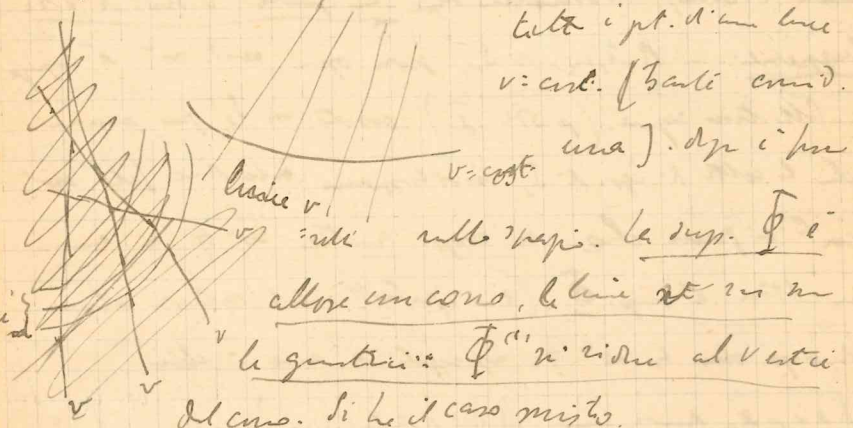 tutti i pt. di una linea
v = cost. (Basta consid.
una). dopo i
v = cost
linee v
v
= nello spazio. La sup. Φ è
allora un cono, le linee
v
le generatrici: Φ⁽¹⁾ si riduce al vertice
v
v
del cono. Si ha il caso misto.